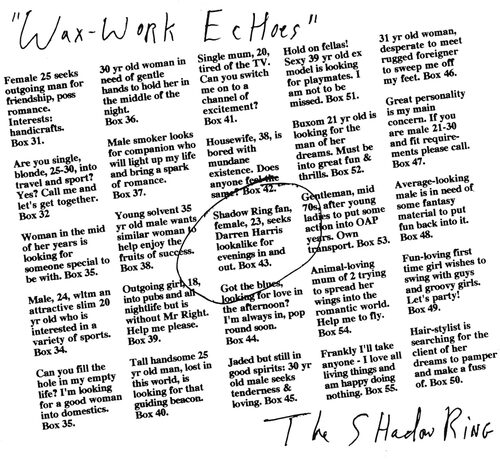 "Wax-Work Echoes"
Female 25 seeks
outgoing man for
friendship, poss
romance.
Interests:
handicrafts.
Box 31.
Are you single,
blonde, 25-30, into
travel and sport?
Yes? Call me and
let's get together.
Box 32
Woman in the mid
of her years is
looking for
someone special to
be with. Box 35.
Male, 24, wltm an
attractive slim 20
yr old who is
interested in a
variety of sports.
Box 34.
Can you fill the
hole in my empty
life? I'm looking
for a good woman
into domestics.
Box 35.
30 yr old woman in
need of gentle
hands to hold her in
the middle of the
night.
Box 36.
Male smoker looks
for companion who
will light up my life
and bring a spark
of romance.
Box 37.
Young solvent 35
yr old male wants
similar woman to
help enjoy the
fruits of success.
Box 38.
Outgoing girl, 18,
into pubs and all
nightlife but is
without Mr Right.
Help me please.
Box 39.
Tall handsome 25
yr old man, lost in
this world, is
looking for that
guiding beacon.
Box 40.
Single mum, 20,
tired of the TV.
Can you switch
me on to a
channel of
excitement?
Box 41.
Housewife, 38, is
bored with
mundane
existence. Does
anyone feel the
same? Box 42.
Shadow Ring fan,
female, 23, seeks
Darren Harris
lookalike for
evenings in and
out. Box 43.
Got the blues,
looking for love in
the afternoon?
I'm always in, pop
round soon.
Box 44.
Jaded but still in
good spirits: 30 yr
old male seeks
tenderness &
loving. Box 45.
Hold on fellas!
Sexy 39 yr old ex
model is looking
for playmates. I
am not to be
missed. Box 51.
Buxom 21 yr old is
looking for the
man of her
dreams. Must be
into great fun &
thrills. Box 52.
Gentleman, mid
70s, after young
ladies to put some
action into OAP
years. Own
transport. Box 53.
Animal-loving
mum of 2 trying
to spread her
wings into the
romantic world.
Help me to fly.
Box 54.
Frankly I'll take
anyone - I love all
living things and
am happy doing
nothing. Box 55.
31 yr old woman,
desperate to meet
rugged foreigner
to sweep me off
my feet. Box 46.
Great personality
is my main
concern. If you
are male 21-30
and fit require-
ments please call.
Box 47.
Average-looking
male is in need of
some fantasy
material to put
fun back into it.
Box 48.
Fun-loving first
time girl wishes to
swing with guys
and groovy girls.
Let's party!
Box 49.
Hair-stylist is
searching for the
client of her
dreams to pamper
and make a fuss
of. Box 50.
The SHadow RiNg